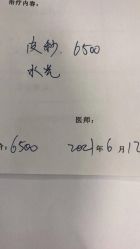 治疗内容:
皮秒. 6500
水光
医师:
6500 2021年6月12